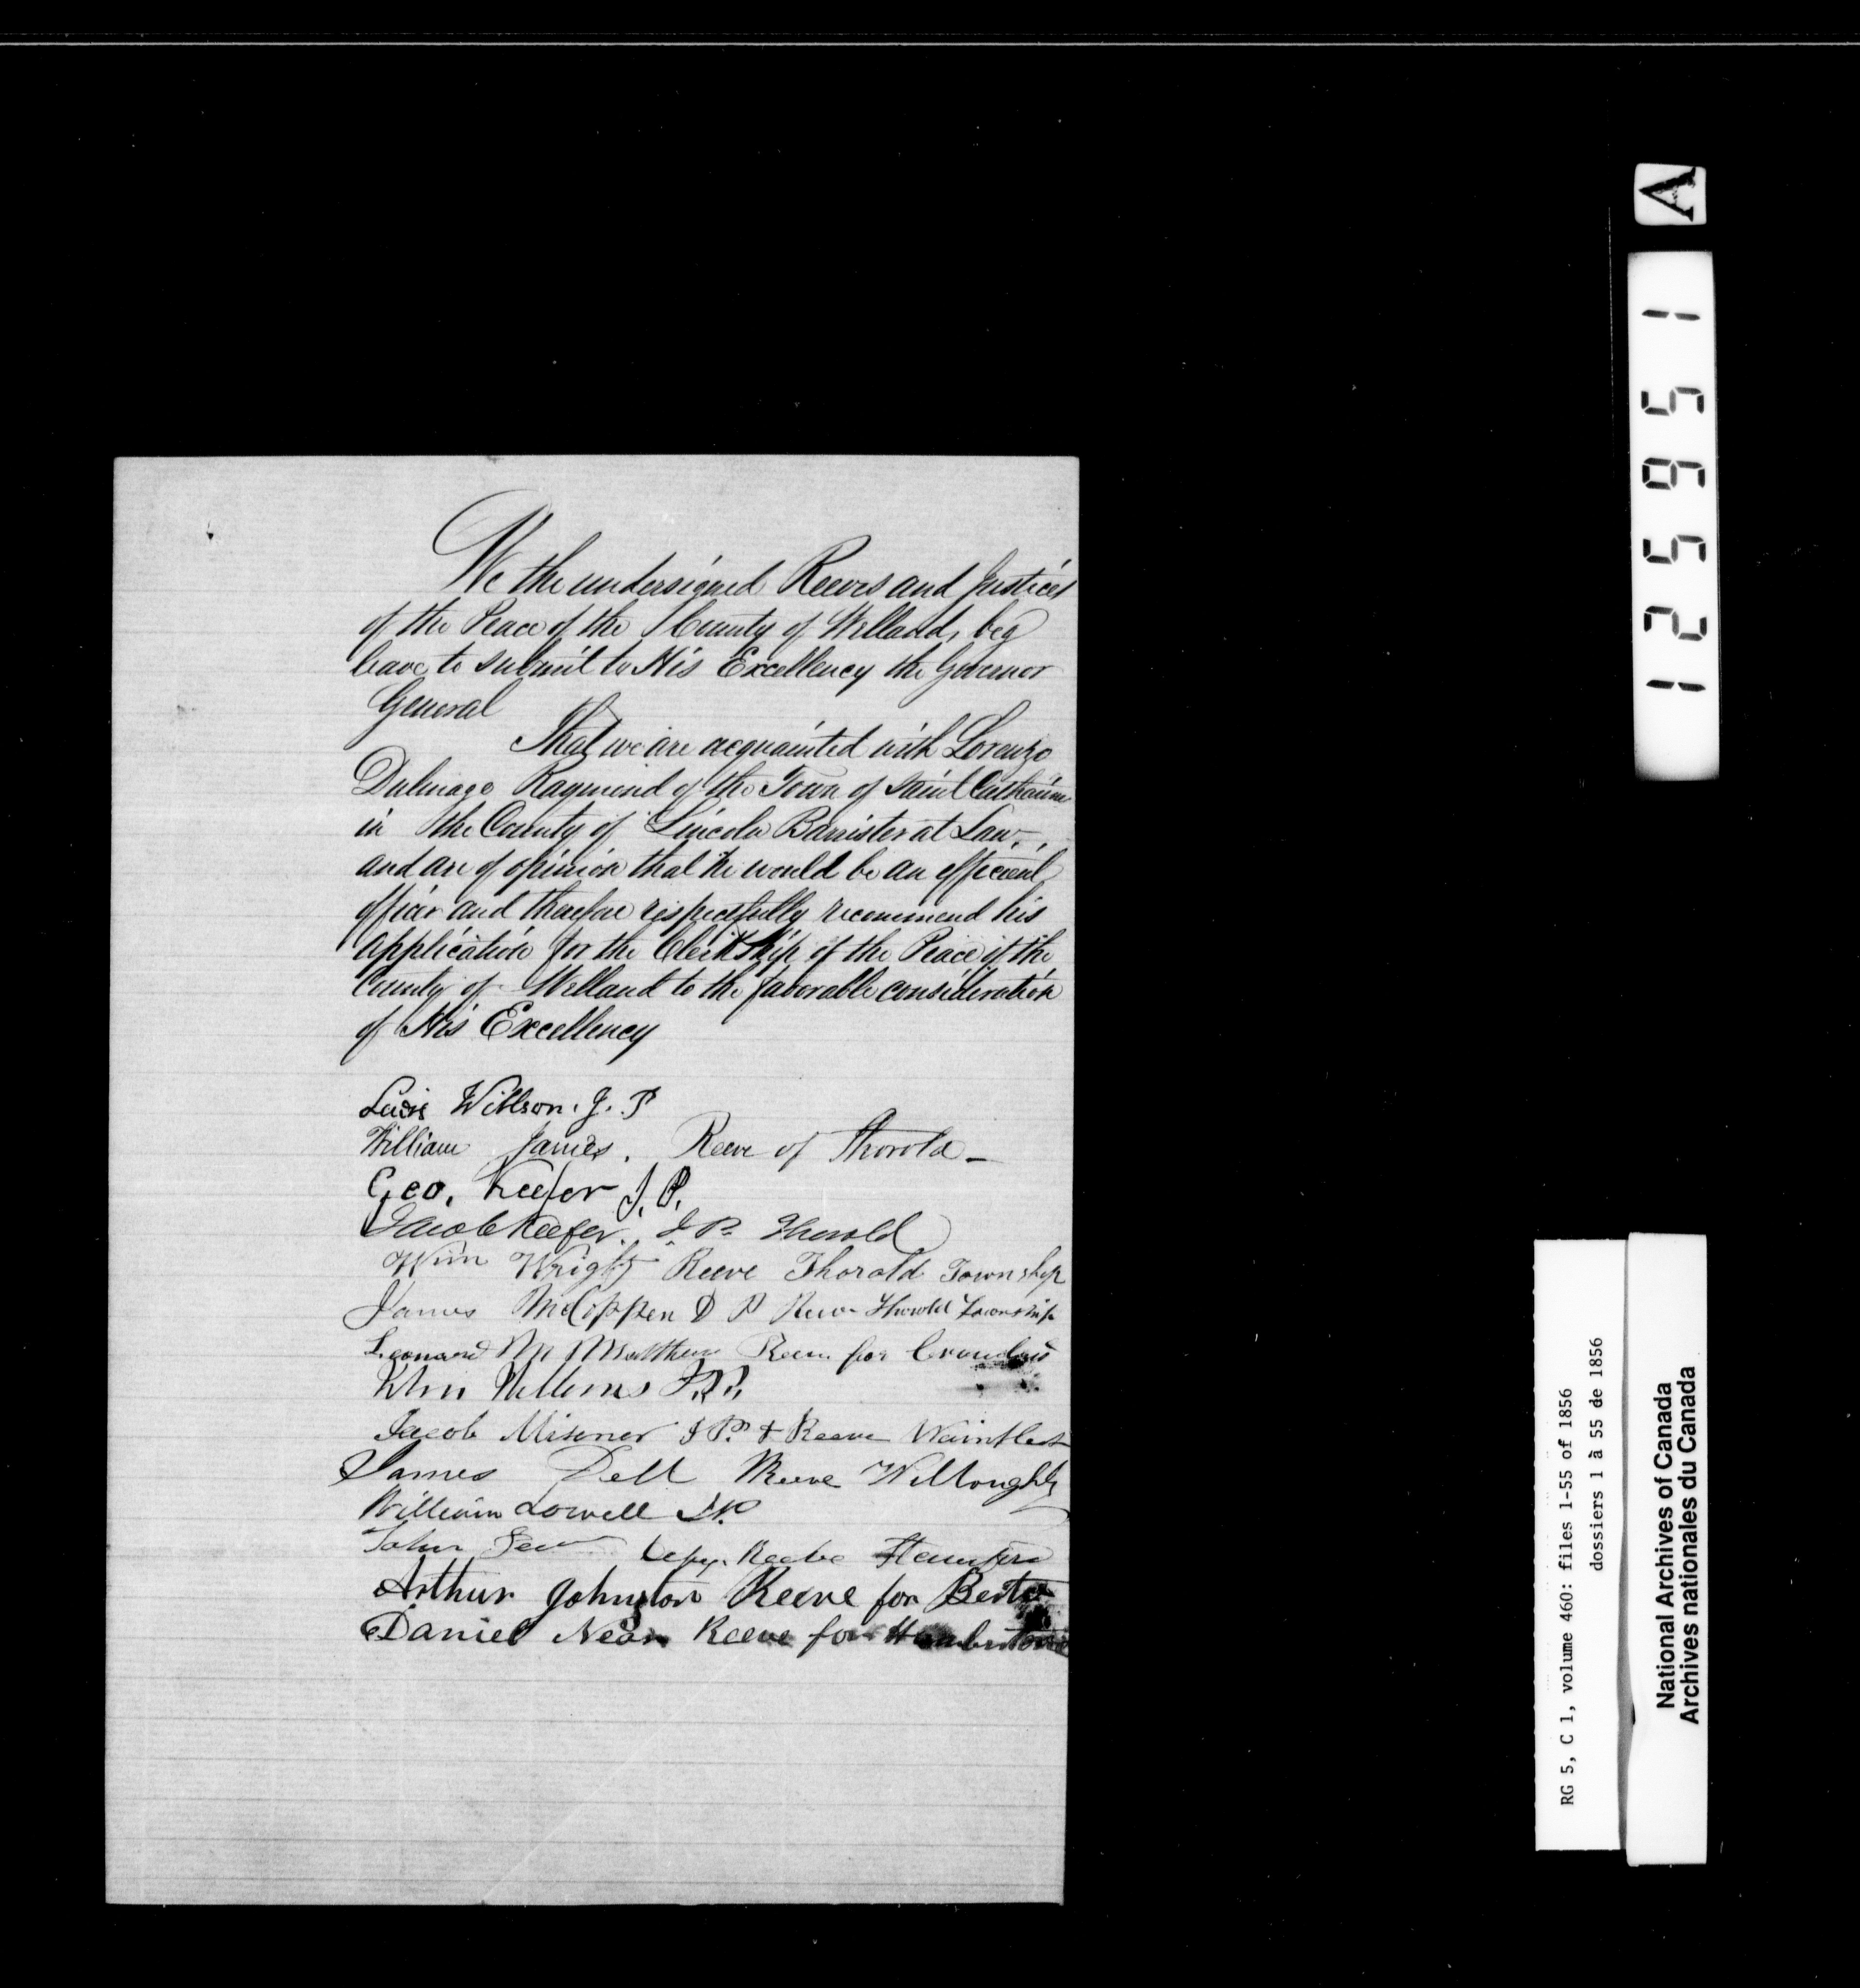 We the undersigned Reeves and Justices
of the Peace of the County of Welland, beg
leave to submit to His Excellency the Governor
General
That we are acquainted with Lorenzo
Dulmage Raymond of the Town of Saint Catharines
in the County of Lincoln Barrister at Law,
and are of opinion that he would be an efficient
officer and therefore respectfully recommend his
application for the Clerkship of the Peace of the
County of Welland to the favorable consideration
of His Excellency
Lewis Willson. J. P
William James. Reeve of Thorold
Geo. Keefer J. P.
Jacob Keefer. J P. Thorold
Wm Wright Reeve Thorold Township
James McCoppen D P Reeve Thorold Township
Leonard M Matthews Reeve for Crowland
John J.P.
Jacob Misener J P. & Reeve Wainfleet
James Dell Reeve Willoughby
William Lowell J.P
John Depy. Reeve Stamford
Arthur Johnston Reeve for Bertie
Daniel Near Reeve for Humberstone
A
125951
RG 5, C 1, volume 460: files 1-55 of 1856
dossiers 1 à 55 de 1856
National Archives of Canada
Archives nationales du Canada